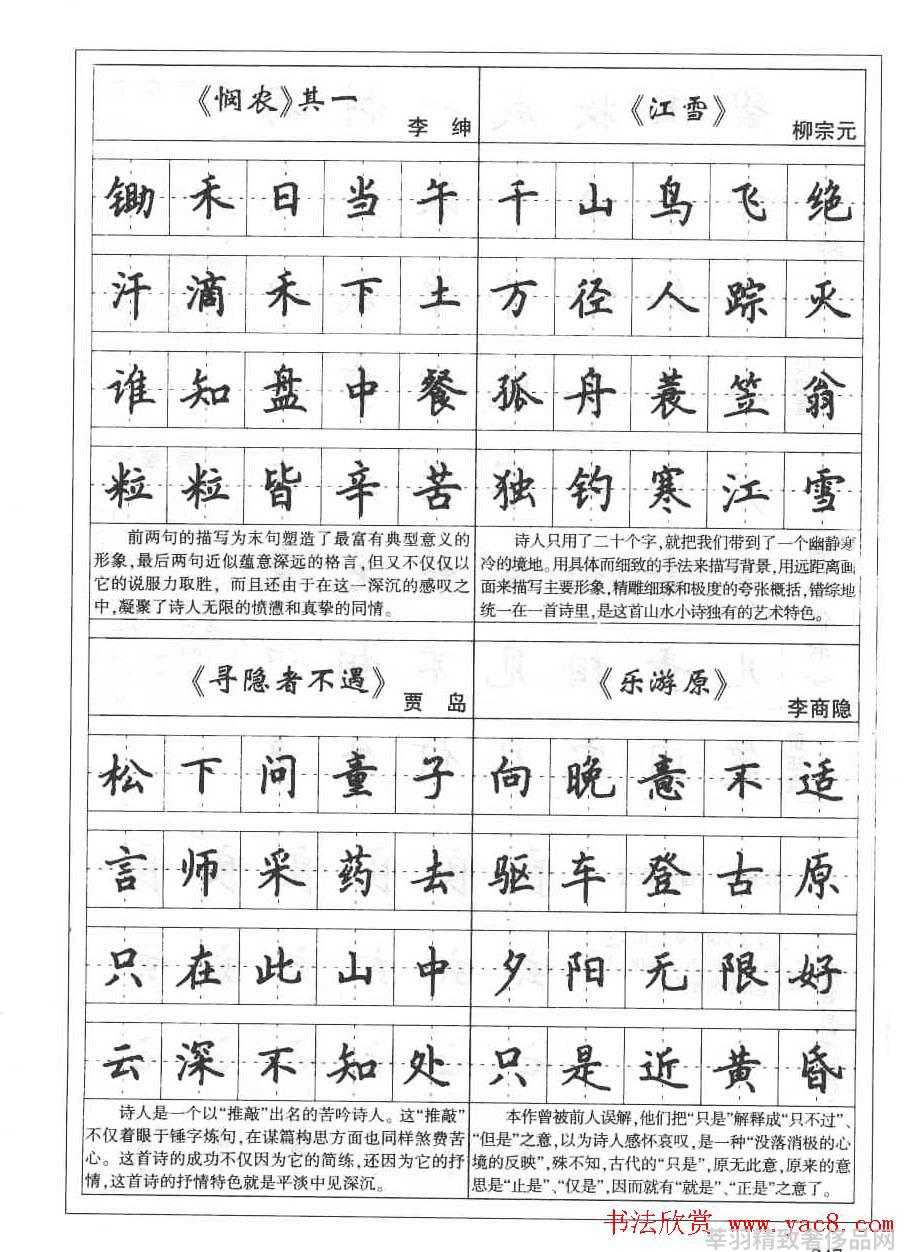 《悯农》其一
李 绅
锄禾日当午
汗滴禾下土
谁知盘中餐
粒粒皆辛苦
前两句的描写为末句塑造了最富有典型意义的
形象,最后两句近似蕴意深远的格言,但又不仅仅以
它的说服力取胜,而且还由于在这一深沉的感叹之
中,凝聚了诗人无限的愤懑和真挚的同情。
《江雪》
柳宗元
千山鸟飞绝
万径人踪灭
孤舟蓑笠翁
独钓寒江雪
诗人只用了二十个字,就把我们带到了一个幽静寒
冷的境地。用具体而细致的手法来描写背景,用远距离画
面来描写主要形象,精雕细琢和极度的夸张概括,错综地
统一在一首诗里,是这首山水小诗独有的艺术特色。
《寻隐者不遇》
贾 岛
松下问童子
言师采药去
只在此山中
云深不知处
诗人是一个以“推敲”出名的苦吟诗人。这“推敲”
不仅着眼于锤字炼句,在谋篇构思方面也同样煞费苦
心。这首诗的成功不仅因为它的简练,还因为它的抒
情,这首诗的抒情特色就是平淡中见深沉。
《乐游原》
李商隐
向晚意不适
驱车登古原
夕阳无限好
只是近黄昏
本作曾被前人误解,他们把“只是”解释成“只不过”、
“但是”之意,以为诗人感怀哀叹,是一种“没落消极的心
境的反映”,殊不知,古代的“只是”,原无此意,原来的意
思是“止是”、“仅是”,因而就有“就是”、“正是”之意了。
书法欣赏 www.yac8.com
莘羽精致奢侈品网